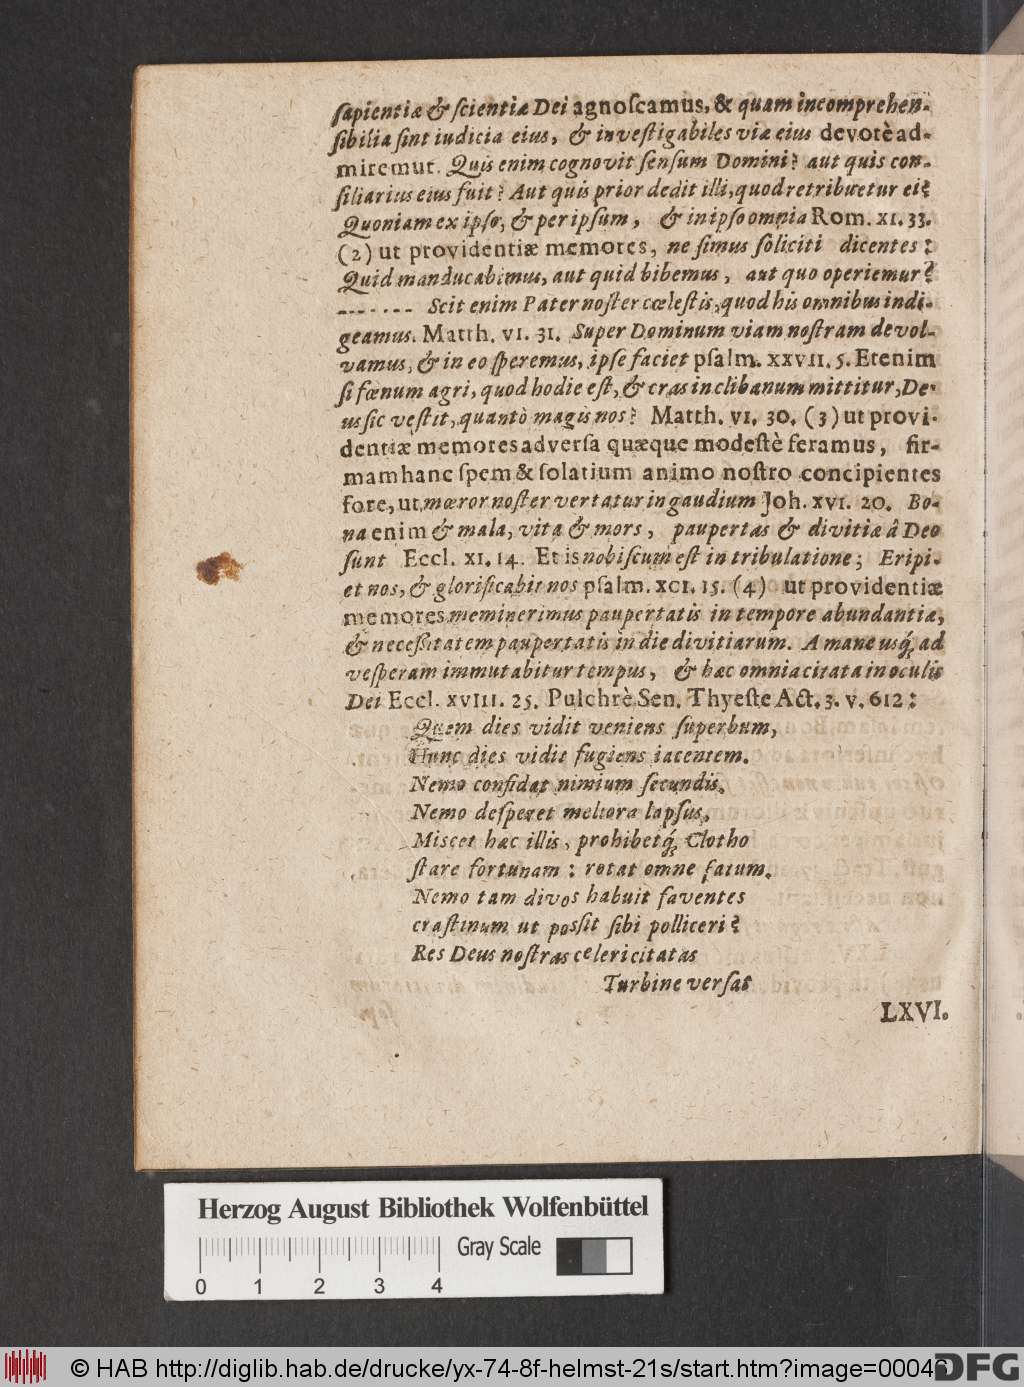 sapientiæ & scientiæ Dei agnoscamus, & quam incomprehen-
sibilia sint iudicia eius, & investigabiles viæ eius devotè ad-
miremur. Quis enim cognovit sensum Domini? aut quis con-
siliarius eius fuit? Aut quis prior dedit illi, quod retribuetur ei?
Quoniam ex ipso, & per ipsum, & in ipso omnia Rom. XI. 33.
(2) ut providentiæ memores, ne simus soliciti dicentes:
Quid manducabimus, aut quid bibemus, aut quo operiemur?
------- Scit enim Pater noster cœlestis, quod his omnibus indi-
geamus. Matth. VI. 31. Super Dominum viam nostram devol-
vamus, & in eo speremus, ipse faciet psalm. XXVII. 5. Etenim
si fœnum agri, quod hodie est, & cras in clibanum mittitur, De-
us sic vestit, quantò magis nos? Matth. VI. 30. (3) ut provi-
dentiæ memores adversa quæque modestè feramus, fir-
mam hanc spem & solatium animo nostro concipientes
fore, ut mœror noster vertatur in gaudium Joh. XVI. 20. Bo-
na enim & mala, vita & mors, paupertas & divitiæ â Deo
sunt Eccl. XI. 14. Et is nobiscum est in tribulatione; Eripi-
et nos, & glorificabit nos psalm. XCI. 15. (4) ut providentiæ
memores meminerimus paupertatis in tempore abundantiæ,
& necessitatem paupertatis in die divitiarum. A mane usq; ad
vesperam immutabitur tempus, & hæc omnia citata in oculis
Dei Eccl. XVIII. 25. Pulchrè Sen. Thyeste Act. 3. v. 612:
Quem dies vidit veniens superbum,
Hunc dies vidit fugiens iacentem.
Nemo confidat nimium secundis,
Nemo desperet meliora lapsus,
Miscet hæc illis, prohibetq; Clotho
stare fortunam: rotat omne fatum.
Nemo tam divos habuit faventes
crastinum ut possit sibi polliceri?
Res Deus nostras celeri citatas
Turbine versat
LXVI.
Herzog August Bibliothek Wolfenbüttel
Gray Scale
0 1 2 3 4
© HAB http://diglib.hab.de/drucke/yx-74-8f-helmst-21s/start.htm?image=00046
DFG